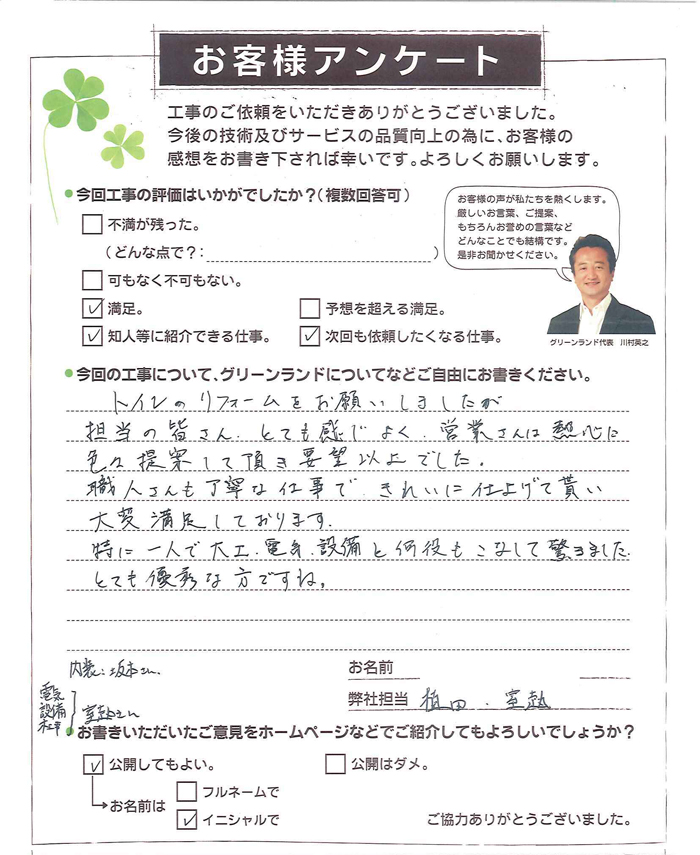 お客様アンケート
工事のご依頼をいただきありがとうございました。
今後の技術及びサービスの品質向上の為に、お客様の
感想をお書き下されば幸いです。よろしくお願いします。
●今回工事の評価はいかがでしたか?(複数回答可)
お客様の声が私たちを熱くします。
厳しいお言葉、ご提案、
もちろんお誉めの言葉など
どんなことでも結構です。
是非お聞かせください。
不満が残った。
(どんな点で?: )
可もなく不可もない。
満足。 予想を超える満足。
知人等に紹介できる仕事。 次回も依頼したくなる仕事。
グリーンランド代表 川村英之
●今回の工事について、グリーンランドについてなどご自由にお書きください。
トイレのリフォームをお願いしましたが
担当の皆さん、とても感じよく、営業さんは熱心に
色々提案して頂き要望以上でした。
職人さんも丁寧な仕事で、きれいに仕上げて貰い
大変満足しております。
特に一人で大工、電気、設備と何役もこなして驚きました
とても優秀な方ですね。
内装:坂本さん
お名前
電気
設備
室熱さん
弊社担当 植田、室熱
●お書きいただいたご意見をホームページなどでご紹介してもよろしいでしょうか?
公開してもよい。 公開はダメ。
お名前は フルネームで
イニシャルで
ご協力ありがとうございました。